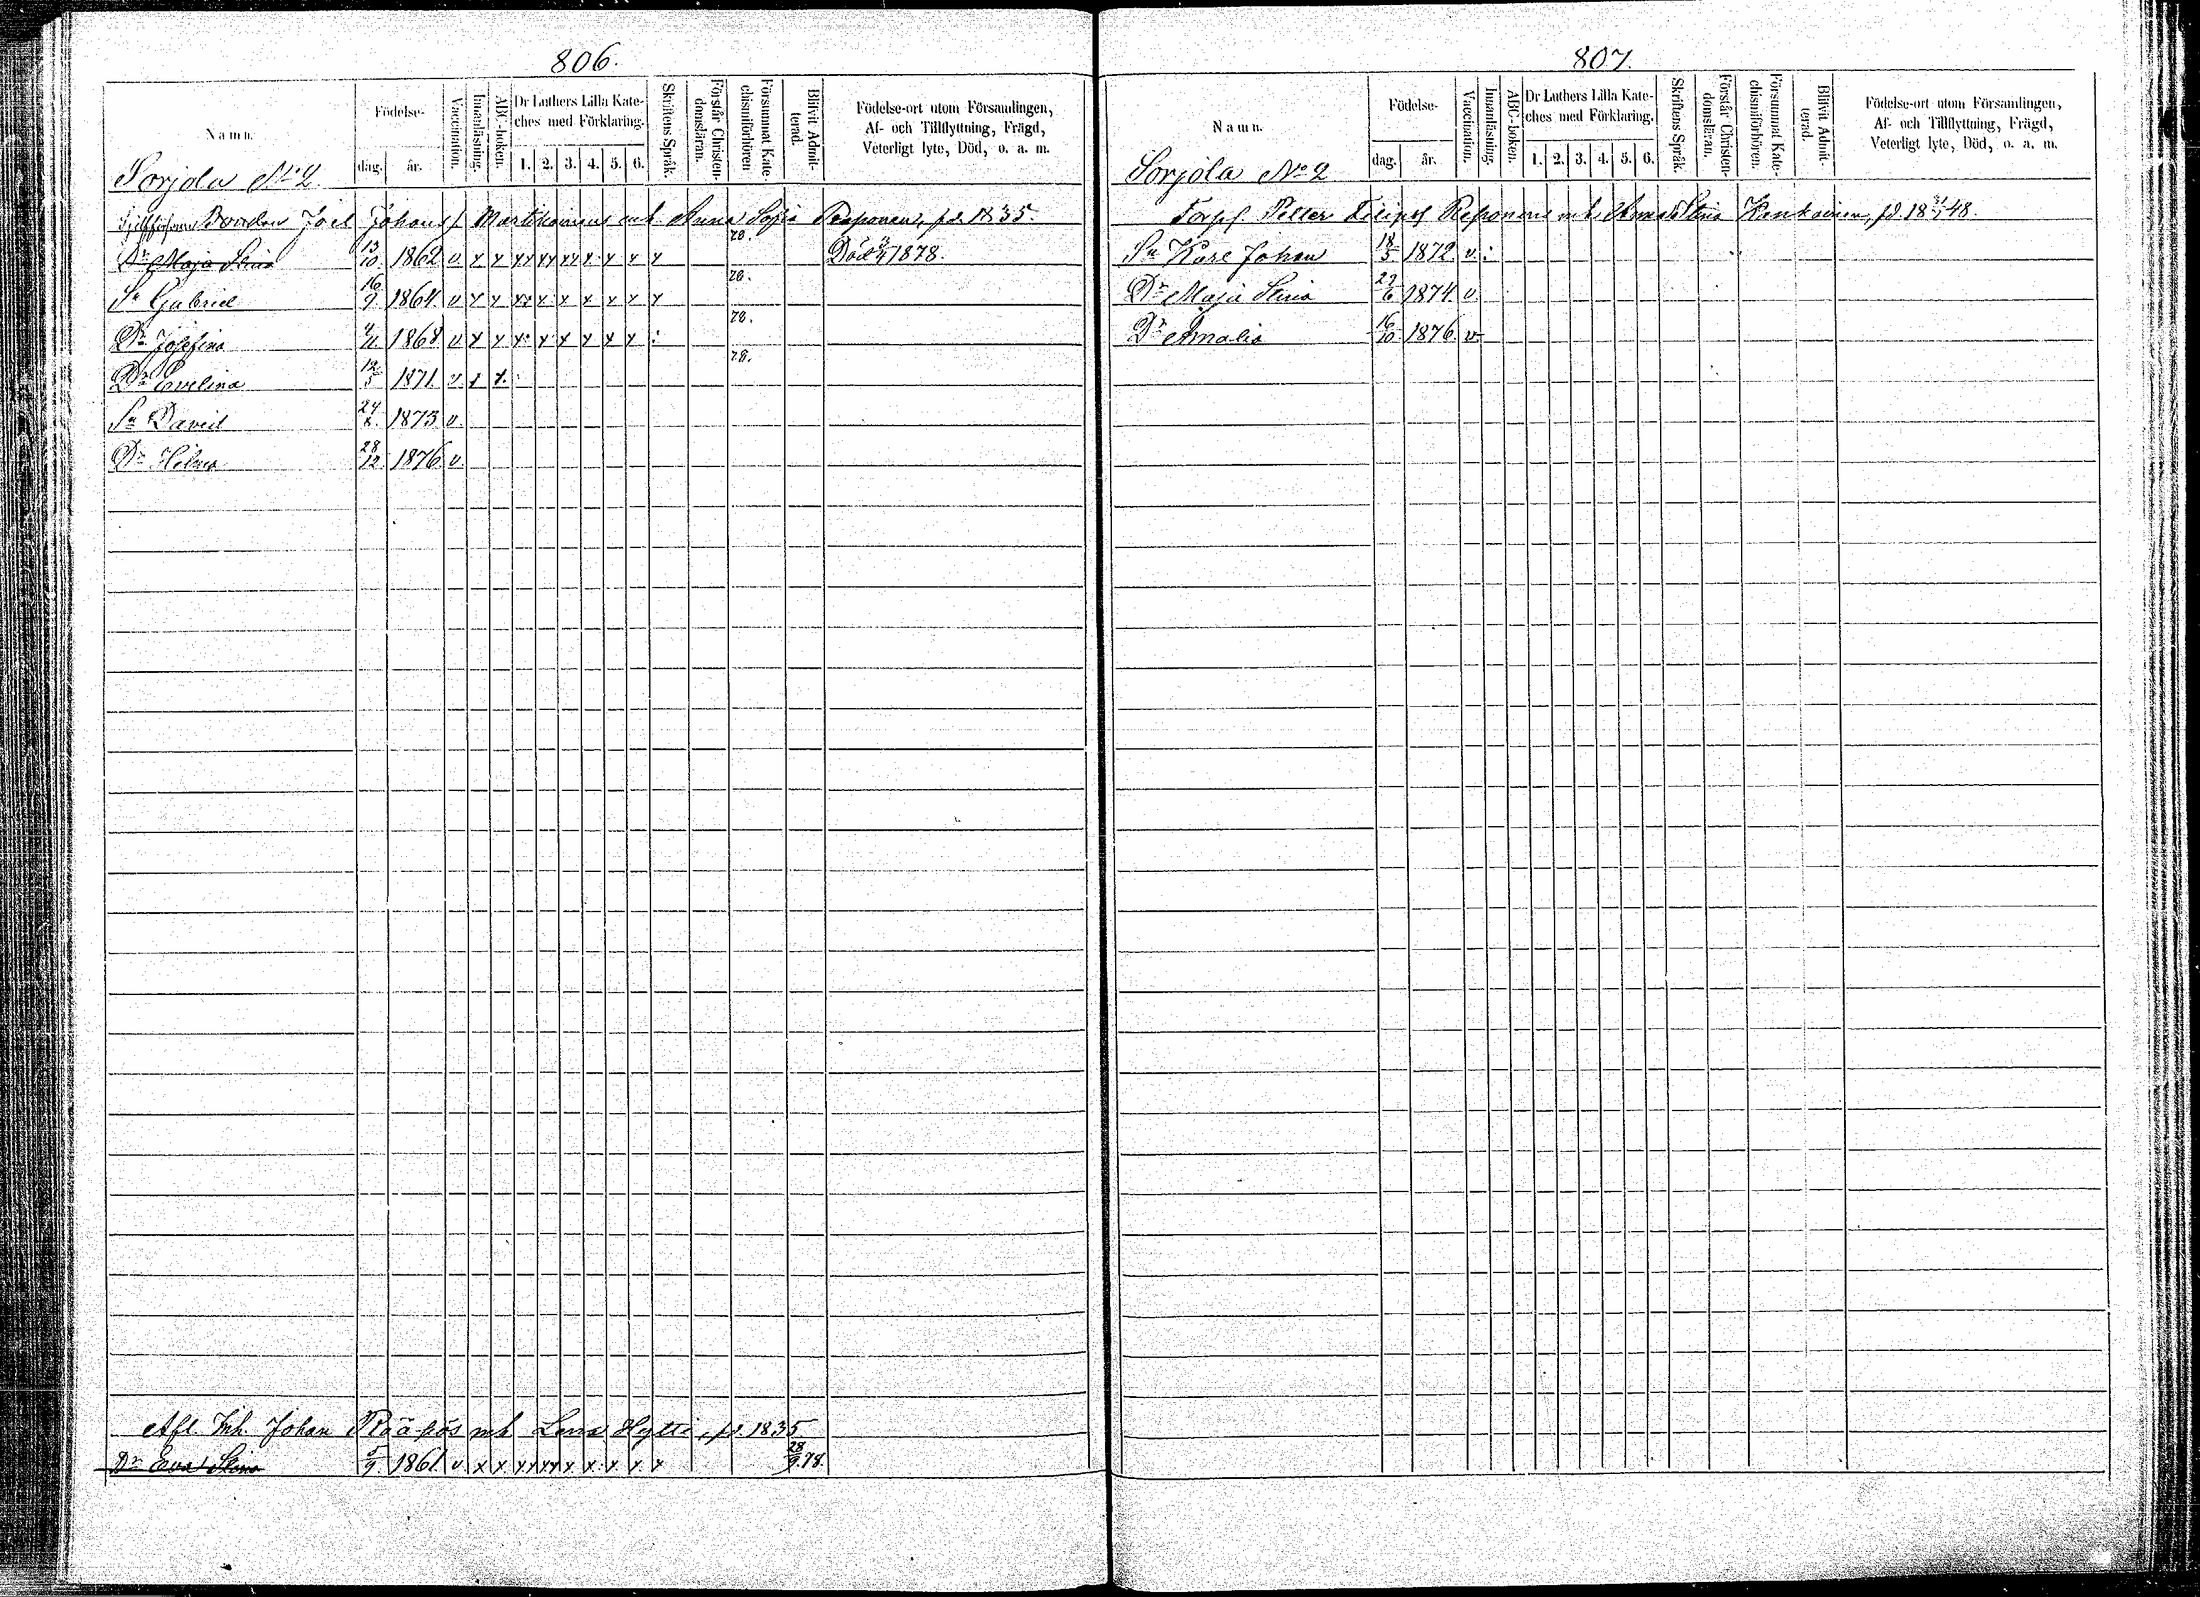 806.
Namn.
Födelse-
dag. år.
Vaccination.
Innanläsning.
ABC-boken.
Dr Luthers Lilla Kate-
ches med Förklaring.
1. 2. 3. 4. 5. 6.
Skriftens Språk.
Förstår Christen-
domsläran.
Försummat Kate-
chismiförhören
Blifvit Admit-
terad.
Födelse-ort utom Församlingen,
Af- och Tillflyttning, Frägd,
Veterligt lyte, Död, o. a. m.
Sorjola No 2
Bonden Joel Johans s. Martikainens m. h. Anna Sofia fd. 1835.
Dr Maja Stina 13/10 1862 v x x xx xx xx x x x x 78. Död 1878.
Sn Gabriel 16/9 1864 v x x x: x x x x x x 78.
Dr Josefina 4/11 1868 v x x x: x x x x x : 78.
Dr Evelina 12/5 1871 v x x 78.
Sn David 24/8 1873 v.
Dr Hilma 28/12 1876 v.
Afl. Inh. Johan Rääpös m. h. Lena Hytti, fd. 1835
Dr Eva Stina 5/9 1861 v x x xx xx x x x x x 28/9 78.
807.
Namn.
Födelse-
dag. år.
Vaccination.
Innanläsning.
ABC-boken.
Dr Luthers Lilla Kate-
ches med Förklaring.
1. 2. 3. 4. 5. 6.
Skriftens Språk.
Förstår Christen-
domsläran.
Försummat Kate-
chismiförhören.
Blifvit Admit-
terad.
Födelse-ort utom Församlingen,
Af- och Tillflyttning, Frägd,
Veterligt lyte, Död, o. a. m.
Sorjola No 2
Torps. Petter Filips s. Reponens m. h. Anna Stina fd. 1848.
Sn Karl Johan 18/5 1872 v :
Dr Maja Stina 1874 v
Dr Amalia 16/10 1876 v